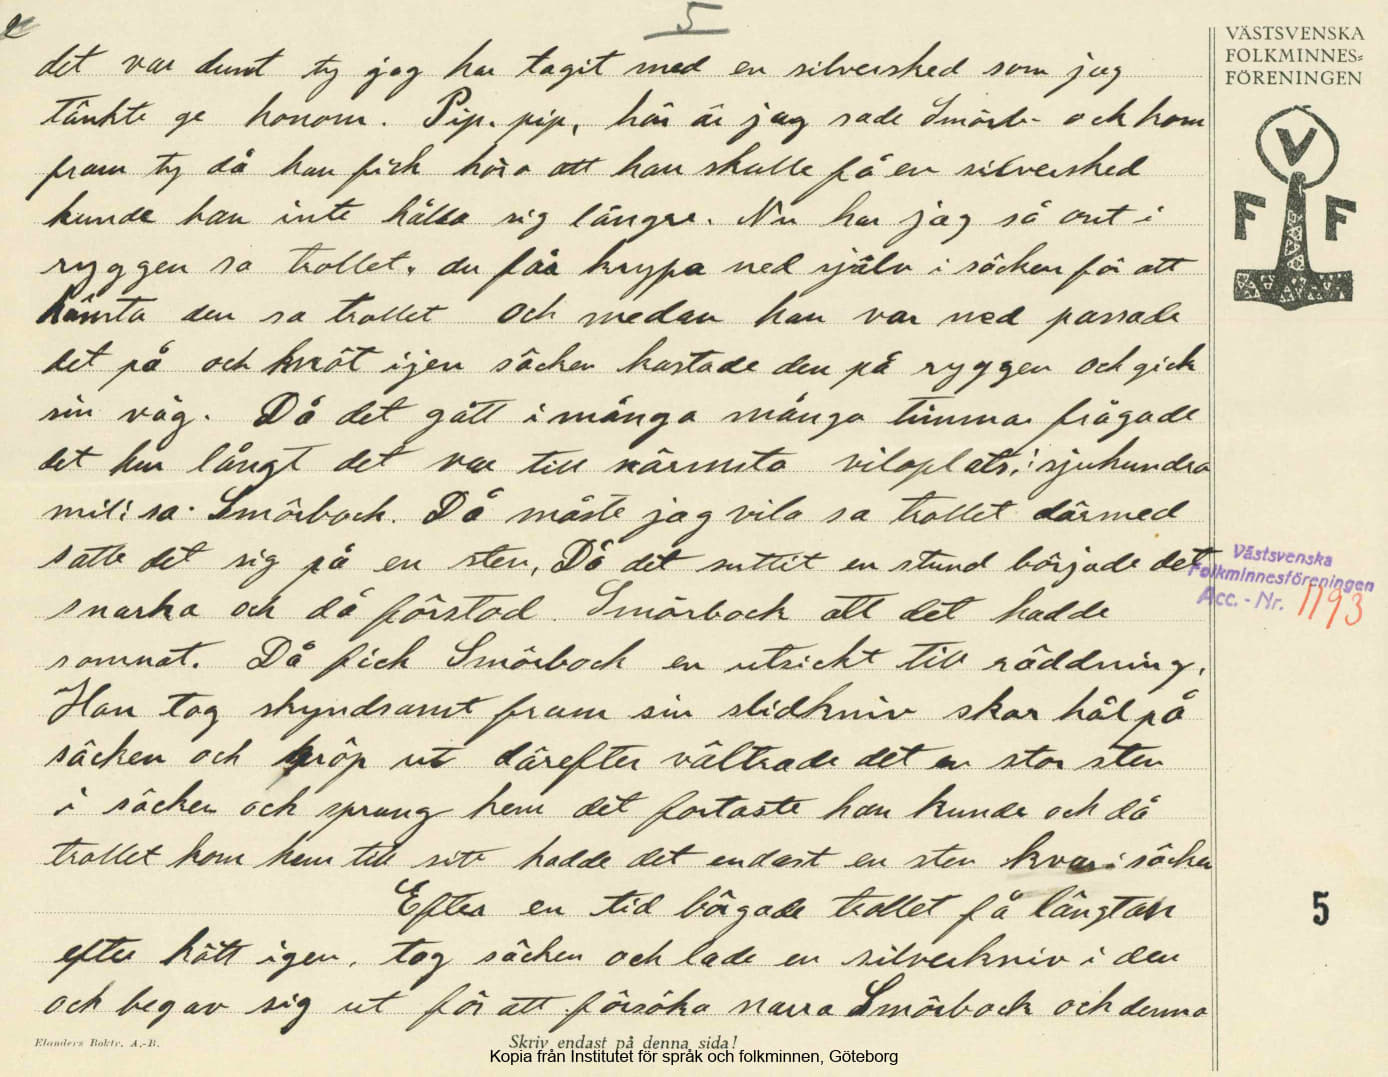 5
VÄSTSVENSKA
FOLKMINNES=
FÖRENINGEN
V
F F
det var dumt ty jag har tagit med en silversked som jag
tänkte ge honom. Pip. pip, här är jag sade Smörb- och kom
fram ty då han fick höra att han skulle få en silversked
kunde han inte hålla sig längre. Nu har jag så ont i
ryggen sa trollet, du får krypa ned själv i säcken för att
hämta den sa trollet och medan han var ned passade
det på och knöt igen säcken kastade den på ryggen och gick
sin väg. Då det gått i många många timmar frågade
det hur långt det var till närmsta viloplats, sjuhundra
mil: sa Smörbock. Då måste jag vila sa trollet därmed
satte det sig på en sten, Då det suttit en stund började det
snarka och då förstod Smörbock att det hade
somnat. Då fick Smörbock en utsickt till räddning,
Han tog skyndsamt fram sin slidkniv skar hål på
säcken och kröp ut därefter vältrade det en stor sten
i säcken och sprang hem det fortaste han kunde och då
trollet kom hem till sitt hadde det endast en sten kvar i säcken
Efter en tid börgade trollet få längtan
efter kött igen, tog säcken och lade en silverkniv i den
och begav sig ut för att försöka narra Smörbock och denna
Västsvenska
Folkminnesföreningen
Acc. - Nr. 1193
5
Elanders Boktr. A.-B.
Skriv endast på denna sida!
Kopia från Institutet för språk och folkminnen, Göteborg